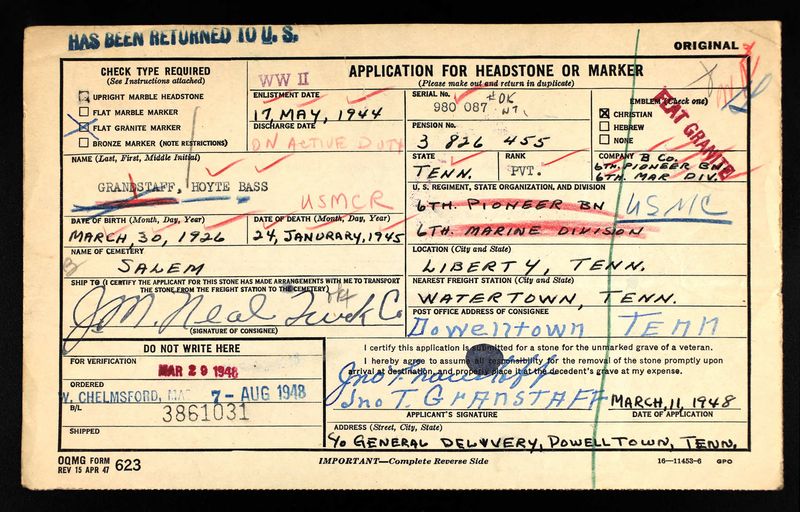 HAS BEEN RETURNED TO U. S.
ORIGINAL
CHECK TYPE REQUIRED
(See Instructions attached)
UPRIGHT MARBLE HEADSTONE
FLAT MARBLE MARKER
FLAT GRANITE MARKER
BRONZE MARKER (NOTE RESTRICTIONS)
WW II
APPLICATION FOR HEADSTONE OR MARKER
(Please make out and return in duplicate)
ENLISTMENT DATE
17, MAY, 1944
DISCHARGE DATE
ON ACTIVE DUTY
SERIAL No.
980 087
OK
PENSION No.
3 826 455
EMBLEM (Check one)
CHRISTIAN
HEBREW
NONE
FLAT GRANITE
NAME (Last, First, Middle Initial)
GRANDSTAFF, HOYTE BASS
USMCR
STATE
TENN.
RANK
PVT.
COMPANY B CO.
6TH. PIONEER BN
6TH. MAR DIV.
U. S. REGIMENT, STATE ORGANIZATION, AND DIVISION
6TH. PIONEER BN
USMC
6TH. MARINE DIVISION
DATE OF BIRTH (Month, Day, Year)
MARCH, 30, 1926
DATE OF DEATH (Month, Day, Year)
24, JANDRARY, 1945
NAME OF CEMETERY
SALEM
LOCATION (City and State)
LIBERTY, TENN.
SHIP TO (I CERTIFY THE APPLICANT FOR THIS STONE HAS MADE ARRANGEMENTS WITH ME TO TRANSPORT
THE STONE FROM THE FREIGHT STATION TO THE CEMETERY)
J.M. Neal Truck Co
(SIGNATURE OF CONSIGNEE)
NEAREST FREIGHT STATION (City and State)
WATERTOWN, TENN.
POST OFFICE ADDRESS OF CONSIGNEE
Dowelltown TENN
DO NOT WRITE HERE
FOR VERIFICATION
MAR 29 1948
ORDERED
W. CHELMSFORD, 7- AUG 1948
B/L
3861031
SHIPPED
I certify this application is submitted for a stone for the unmarked grave of a veteran.
I hereby agree to assume all responsibility for the removal of the stone promptly upon
arrival at destination, and properly place it at the decedent's grave at my expense.
Jno T. GRANSTAFF
MARCH, 11, 1948
APPLICANT'S SIGNATURE
DATE OF APPLICATION
ADDRESS (Street, City, State)
c/o GENERAL DELYVERY, DOWELLTOWN, TENN.
OQMG FORM
REV 15 APR 47 623
IMPORTANT—Complete Reverse Side
16—11453-6 GPO